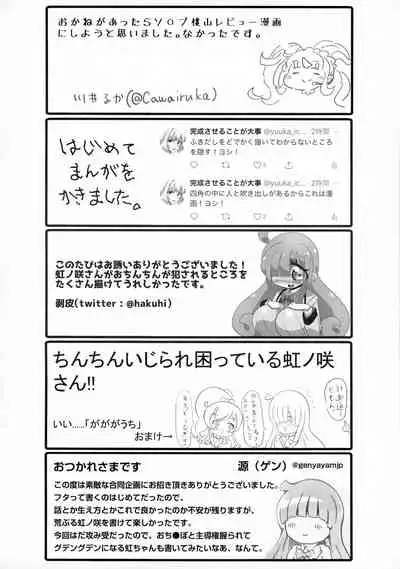 おかねがあったらSYOブ桃山レビュー漫画
にしようと思いました。なかったです。
川井るか(@Cawairuka)
はじめて
まんがを
かきました。
完成させることが大事 @yuuka_ic... 2時間
ふきだしをどでかく描いてわからないところ
を隠す！ヨシ！
完成させることが大事 @yuuka_ic... 2時間
四角の中に人と吹き出しがあるからこれは
漫画！ヨシ！
このたびはお誘いありがとうございました！
虹ノ咲さんがおちんちんが犯されるところを
たくさん描けてうれしかったです。
剥皮(twitter：@hakuhi)
ちんちんいじられ困っている虹ノ咲
さん!!
いい……「がががうち」
おまけ→
おつかれさまです
源（ゲン）@genyayamjp
この度は素敵な合同企画にお招き頂きありがとうございました。
フタって書くのはじめてだったので、
話とか生え方とかこれで良かったのか不安が残りますが、
荒ぶる虹ノ咲を書けて楽しかったです。
今回はだ攻み受だったので、おち●ぽと主導権握られて
グデングデンになる虹ちゃんも書いてみたいなあ、なんて。